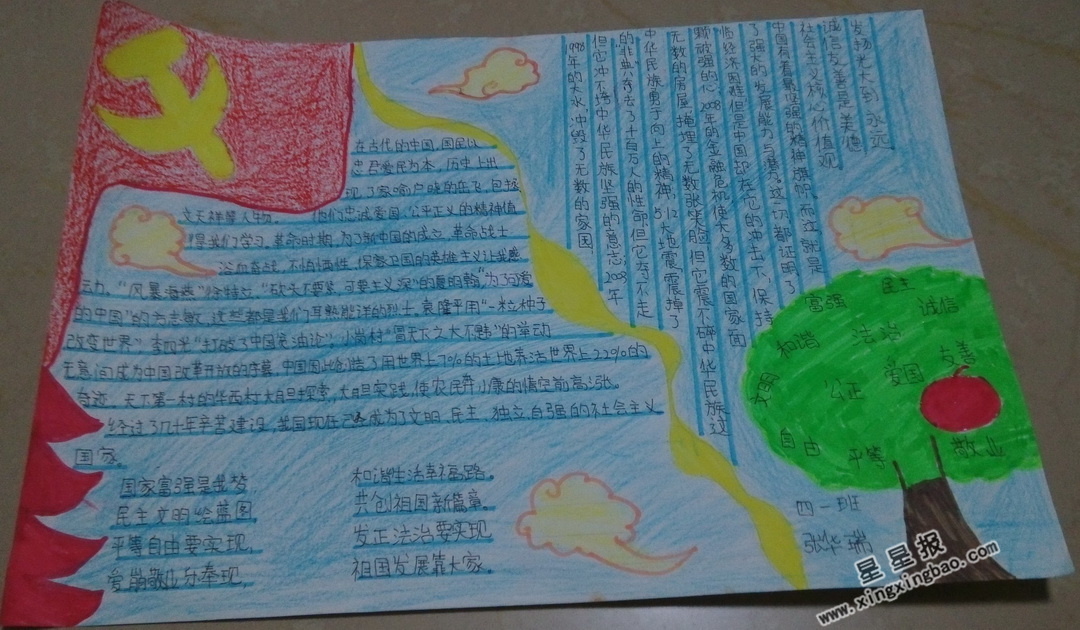 在古代的中国,国民以
忠君爱民为本,历史上出
现了家喻户晓的岳飞,包拯
文天祥等人物,他们忠诚爱国,公平正义的精神值
得我们学习,革命时期,为了新中国的成立,革命战士
浴血奋战,不怕牺牲,保家卫国的英雄主义让我感
动力,“风暴
“砍头不要紧,只要主义深”的夏明翰“为了可爱
的中国”的方志敏,这些都是我们耳熟能详的烈士,袁隆平用“一粒种子
改变世界”李四光“打破了中国贫油论”小岗村“冒天下之大不韪”的举动
无意间成为中国改革开放的序幕,中国因此创造了用世界上7%的土地养活世界上22%的
奇迹,天下第一村的华西村大胆探索,大胆实践,使农民奔小康的情空前高涨。
经过了几十年辛苦建设,我国现在已成为了文明,民主,独立自强的社会主义
国家。
国家富强是我梦,
民主文明绘蓝图
平等自由要实现,
爱岗敬业乐奉现,
和谐生活幸福路。
共创祖国新篇章。
发正法治要实现
祖国发展靠大家。
发扬光大到永远
诚信友善是美德
社会主义核心价值观
中国有着最坚强的精神旗帜,而这就是
了强大的发展能力与基石这一切都证明了
临经济困难但是中国却在它的冲击出不保持
颗破强的心,2008年的金融危机使大多数的国家面
无数的房屋,掩埋了无数张笑脸,但它震不碎中华民族过
中华民族勇于向上的精神,5,12大地震震掉了
的“非典”夺去了十百万人的性命但它夺不走
但它冲不垮中华民族坚强的意志;2003年
1998年的大水,冲毁了无数的家园,
富强
民主
诚信
和谐
法治
友善
文明
公正
爱国
自由
平等
敬业
四一班
张华瑞
星星报
www.xingxingbao.com